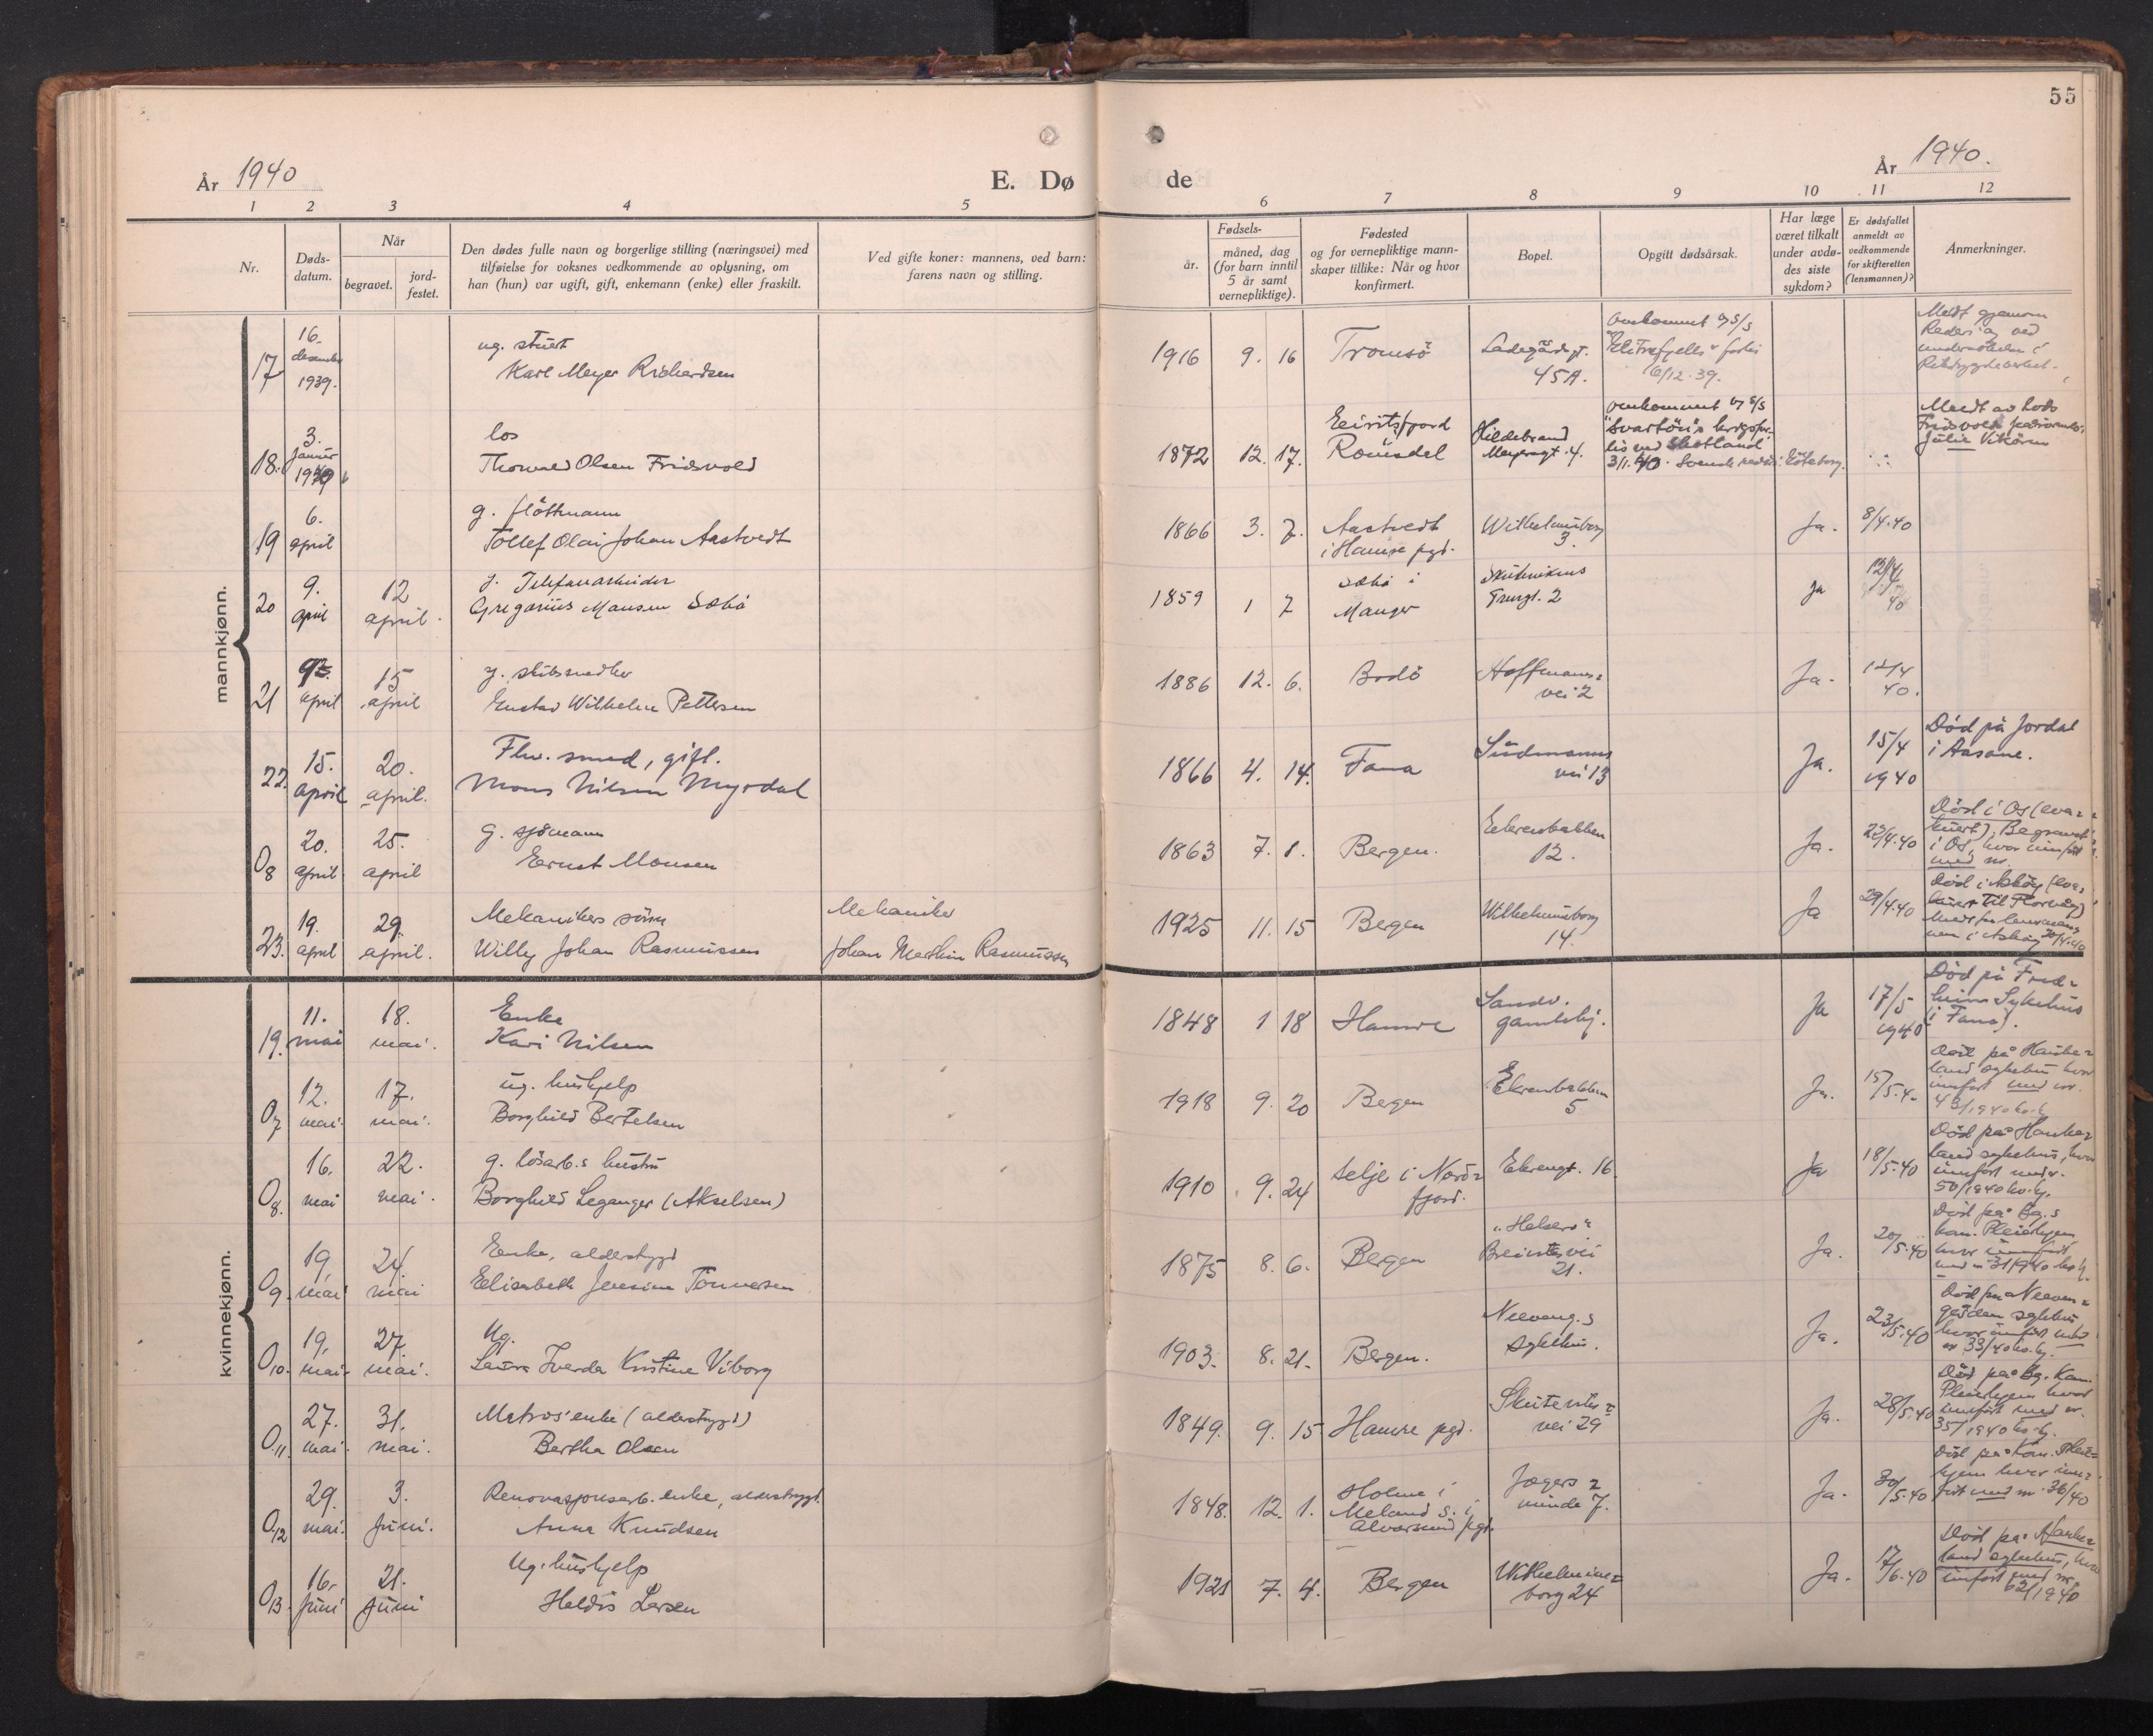 55
År 1940
E. Dø
de
År 1940.
1 2 3 4 5 6 7 8 9 10 11 12
Nr.
Døds-
datum.
Når
begravet.
jord-
festet.
Den dødes fulle navn og borgerlige stilling (næringsvei) med
tilføielse for voksnes vedkommende av oplysning, om
han (hun) var ugift, gift, enkemann (enke) eller fraskilt.
Ved gifte koner: mannens, ved barn:
farens navn og stilling.
Fødsels-
år.
måned, dag
(for barn inntil
5 år samt
vernepliktige).
Fødested
og for vernepliktige mann-
skaper tillike: Når og hvor
konfirmert.
Bopel.
Opgitt dødsårsak.
Har læge
været tilkalt
under avdø-
des siste
sykdom?
Er dødsfallet
anmeldt av
vedkommende
for skifteretten
(lensmannen)?
Anmerkninger.
mannkjønn.
17
16.
desember
1939.
ug. stuert
Karl Meyer Richardsen
1916 9. 16 Tromsö
Ladegårdsgt.
45A.
omkommet
forlis
16/12.39.
Meldt gjennom
Rederi og ved
18.
3.
januar
1940
los
Thorvald Olsen Fridsvold
1872 12. 17.
Romsdal
Hildebrand
Meyersgt. 4.
omkommet v/ s/s
"Svartön"s krigsfor-
lis ved Skotland
3/1.40. Svensk rederi. Göteborg.
Meldt av Lods
19
6.
april
g. fløttmann
Tollef Olai Johan Aastvedt
1866 3. 7. Aastvedt
i Hamre pgd.
Wilhelminborg
3.
Ja. 8/4.40
20
9.
april
12
april.
g. Telefonarbeider
Gregorius Monsen Sæbø
1859 1 7
Sæbø i
Manger
Skuteviks
Torvgt. 2
Ja
12/4
40
21
april
15
april
g. skibssmed
Gustav Wilhelm Pettersen
1886 12. 6. Bodö
Hoffmanns-
vei 2
Ja.
12/4
40.
22.
15.
april
20.
april.
Fhv. smed, gift.
Mons Nilsen Myrdal
1866 4. 14. Fana
vei 13
Ja.
15/4
1940
Död på Jordal
i Aasane.
08
20.
april
25.
april
g. sjömann
Ernst Monsen
1863 7. 1. Bergen.
Ekrenbakken
12.
Ja. 22/4.40
Död i Os (eva-
kuert), Begravet
i Os, hvor innført
med nr.
23.
19.
april
29.
april.
Mekanikers sønn
Willy Johan Rasmussen
Mekaniker
Johan Martin Rasmussen
1925 11. 15 Bergen
Wilhelminborg
14.
Ja 29/4.40
Död i Askøy (eva-
kuert til Florvåg)
Meldt for lensman-
nen i Askøy 20/4.40
kvinnekjønn.
19.
11.
mai
18.
mai.
Enke
Kari Nilsen
1848 1 18 Hamre
Sandv.
gamlehj.
Ja
17/5
1940
Död på Fred-
heim Sykehus
i Fana.
07
12.
mai.
17.
mai.
ug. hushjelp
Borghild Bertelsen
1918 9. 20 Bergen
Ekrenbakken
5
Ja.
15/5.40
Död på Hauke-
land sykehus hvor
innført med nr.
43/1940 kv.kj.
08.
16.
mai
22.
mai.
g. løsarb.s hustru
Borghild Leganger (Akselsen)
1910 9. 24
Selje i Nord-
fjord.
Ekrengt. 16.
Ja
18/5.40
Död på Hauke-
land sykehus, hvor
innført med nr.
50/1940 kv.kj.
09.
19.
mai
24.
mai
Enke, alderstrygd
Elisabeth Jensine Tönnesen
1875 8. 6. Bergen
21.
Ja.
20/5.40
Död på Bg.s
kom. Pleiehjem
hvor innført
med nr 31/1940 kv.kj.
010.
19.
mai.
27.
mai.
Ug.
Laura Iverda Kristine Viborg
1903. 8. 21. Bergen.
Neeveng.s
sykehus.
Ja.
23/5.40
Död på Neeven-
gården sykehus
hvor innført med
nr 33/40 kv.kj.
011.
27.
mai.
31.
mai.
Matros' enke (alderstrygd)
Bertha Olsen
1849. 9. 15 Hamre pgd.
Skuteviks-
vei 29
Ja.
28/5.40
Död på Bg. Kom.
Pleiehjem hvor
innført med nr.
35/1940 kv.kj.
012
29.
mai.
3.
juni.
Renovasjonsarb. enke, alderstrygd.
Anna Knudsen
1848. 12. 1.
Holme i
Meland s. i
Alversund pgd.
Jægers-
minde 7.
Ja.
30/5.40
Död på Kom. Pleie-
hjem hvor inn-
ført med nr. 36/40
013.
16.
juni
21.
juni
Ug. hushjelp
Haldis Larsen
1921 7. 4. Bergen
Wilhelmine-
borg 24
Ja.
17/6.40
Död på Hauke-
land sykehus, hvor
innført med nr.
62/1940